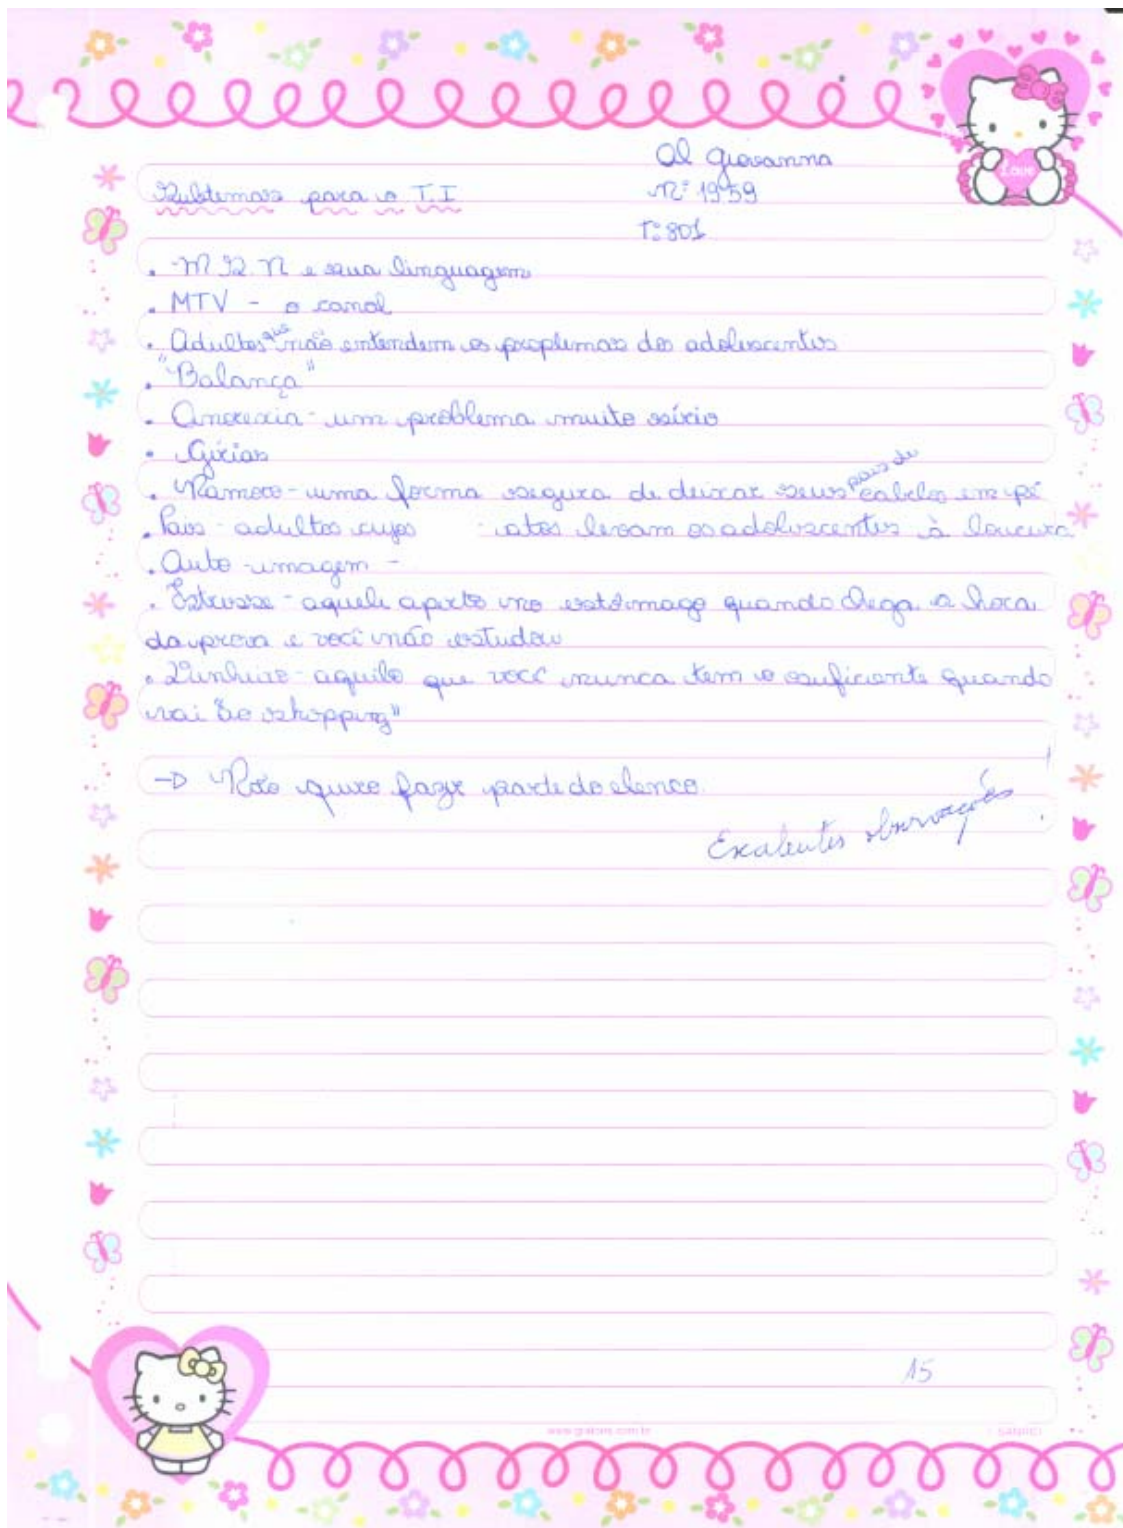 Al Giovanna
Subtemas para o T.I
Nº 1959
T: 801
Love
. M S. N e sua linguagem
. MTV - o canal
. Adultos que não entendem os proplemas dos adolescentes
. "Balança"
. Anorexia - um problema muito sério
. Gírias
. Namoro - uma forma segura de deixar seus pais de cabelos em pé
. Pais - adultos cujos atos levam os adolescentes à loucura
. Auto-imagem -
. Estresse - aquele aperto no estômago quando chega a hora
da prova e você não estudou
. Dinheiro - aquilo que você nunca tem o suficiente quando
vai ao shopping"
→ Não quero fazer parte do elenco.
Excelentes observações!
15